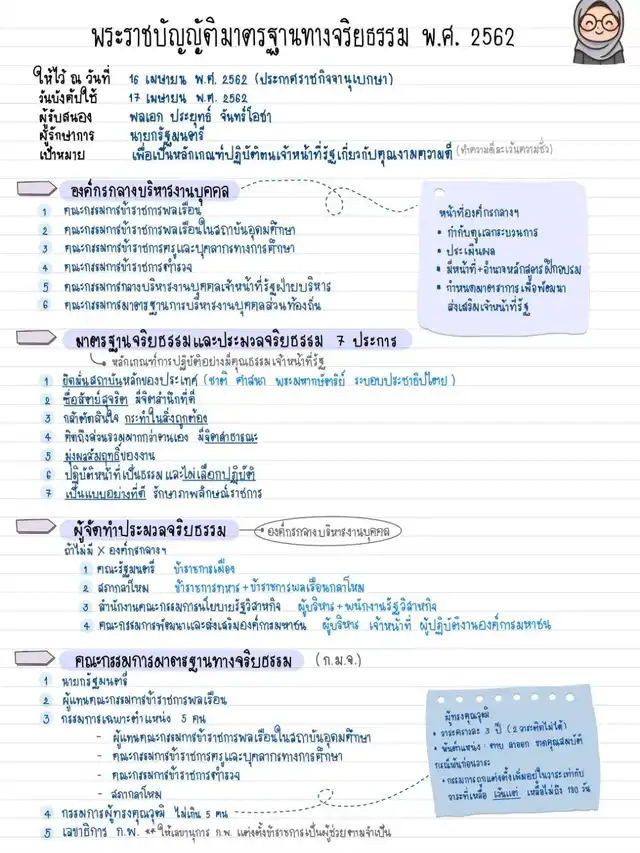 พระราชบัญญัติมาตรฐานทางจริยธรรม พ.ศ. 2562
ให้ไว้ ณ วันที่ 16 เมษายน พ.ศ. 2562 (ประกาศราชกิจจานุเบกษา)
วันบังคับใช้ 17 เมษายน พ.ศ. 2562
ผู้รับสนอง พลเอก ประยุทธ์ จันทร์โอชา
ผู้รักษาการ นายกรัฐมนตรี
เป้าหมาย เพื่อเป็นหลักเกณฑ์ปฏิบัติตนเจ้าหน้าที่รัฐเกี่ยวกับคุณงามความดี (ทำความดีละเว้นความชั่ว)
องค์กรกลางบริหารงานบุคคล
1 คณะกรรมการข้าราชการพลเรือน
2 คณะกรรมการข้าราชการพลเรือนในสถาบันอุดมศึกษา
3 คณะกรรมการข้าราชการครูและบุคลากรทางการศึกษา
4 คณะกรรมการข้าราชการตำรวจ
5 คณะกรรมการกลางบริหารงานบุคคลเจ้าหน้าที่รัฐฝ่ายบริหาร
6 คณะกรรมการมาตรฐานการบริหารงานบุคคลส่วนท้องถิ่น
หน้าที่องค์กรกลางฯ
• กำกับดูแลกระบวนการ
• ประเมินผล
• มีหน้าที่+อำนาจหลักสูตรฝึกอบรม
• กำหนดมาตราการเพื่อพัฒนา
ส่งเสริมเจ้าหน้าที่รัฐ
มาตรฐานจริยธรรมและประมวลจริยธรรม 7 ประการ
หลักเกณฑ์การปฏิบัติอย่างมีคุณธรรมเจ้าหน้าที่รัฐ
1 ยึดมั่นสถาบันหลักของประเทศ (ชาติ ศาสนา พระมหากษัตริย์ ระบอบประชาธิปไตย)
2 ซื่อสัตย์สุจริต มีจิตสำนึกที่ดี
3 กล้าตัดสินใจ กระทำในสิ่งถูกต้อง
4 คิดถึงส่วนรวมมากกว่าตนเอง มีจิตสาธารณะ
5 มุ่งผลสัมฤทธิ์ของงาน
6 ปฏิบัติหน้าที่เป็นธรรมและไม่เลือกปฏิบัติ
7 เป็นแบบอย่างที่ดี รักษาภาพลักษณ์ราชการ
ผู้จัดทำประมวลจริยธรรม • องค์กรกลางบริหารงานบุคคล
ถ้าไม่มี X องค์กรกลางฯ
1 คณะรัฐมนตรี ข้าราชการเมือง
2 สภากลาโหม ข้าราชการทหาร+ข้าราชการพลเรือนกลาโหม
3 สำนักงานคณะกรรมการนโยบายรัฐวิสาหกิจ ผู้บริหาร+พนักงานรัฐวิสาหกิจ
4 คณะกรรมการพัฒนาและส่งเสริมองค์การมหาชน ผู้บริหาร เจ้าหน้าที่ ผู้ปฏิบัติงานองค์การมหาชน
คณะกรรมการมาตรฐานทางจริยธรรม (ก.ม.จ.)
1 นายกรัฐมนตรี
2 ผู้แทนคณะกรรมการข้าราชการพลเรือน
3 กรรมการเฉพาะตำแหน่ง 5 คน
- ผู้แทนคณะกรรมการข้าราชการพลเรือนในสถาบันอุดมศึกษา
- คณะกรรมการข้าราชการครูและบุคลากรทางการศึกษา
- คณะกรรมการข้าราชการตำรวจ
- สภากลาโหม
4 กรรมการผู้ทรงคุณวุฒิ ไม่เกิน 5 คน
5 เลขาธิการ ก.พ. ** ให้เลขานุการ ก.พ. แต่งตั้งข้าราชการเป็นผู้ช่วยตามจำเป็น
ผู้ทรงคุณวุฒิ
• วาระคราวละ 3 ปี (2 วาระติดไม่ได้)
• พ้นตำแหน่ง : ตาย ลาออก ขาดคุณสมบัติ
กรณีพ้นก่อนวาระ
• กรรมการถูกแต่งตั้งเพิ่มอยู่ในวาระเท่ากับ
วาระที่เหลือ เว้นแต่ เหลือไม่ถึง 180 วัน